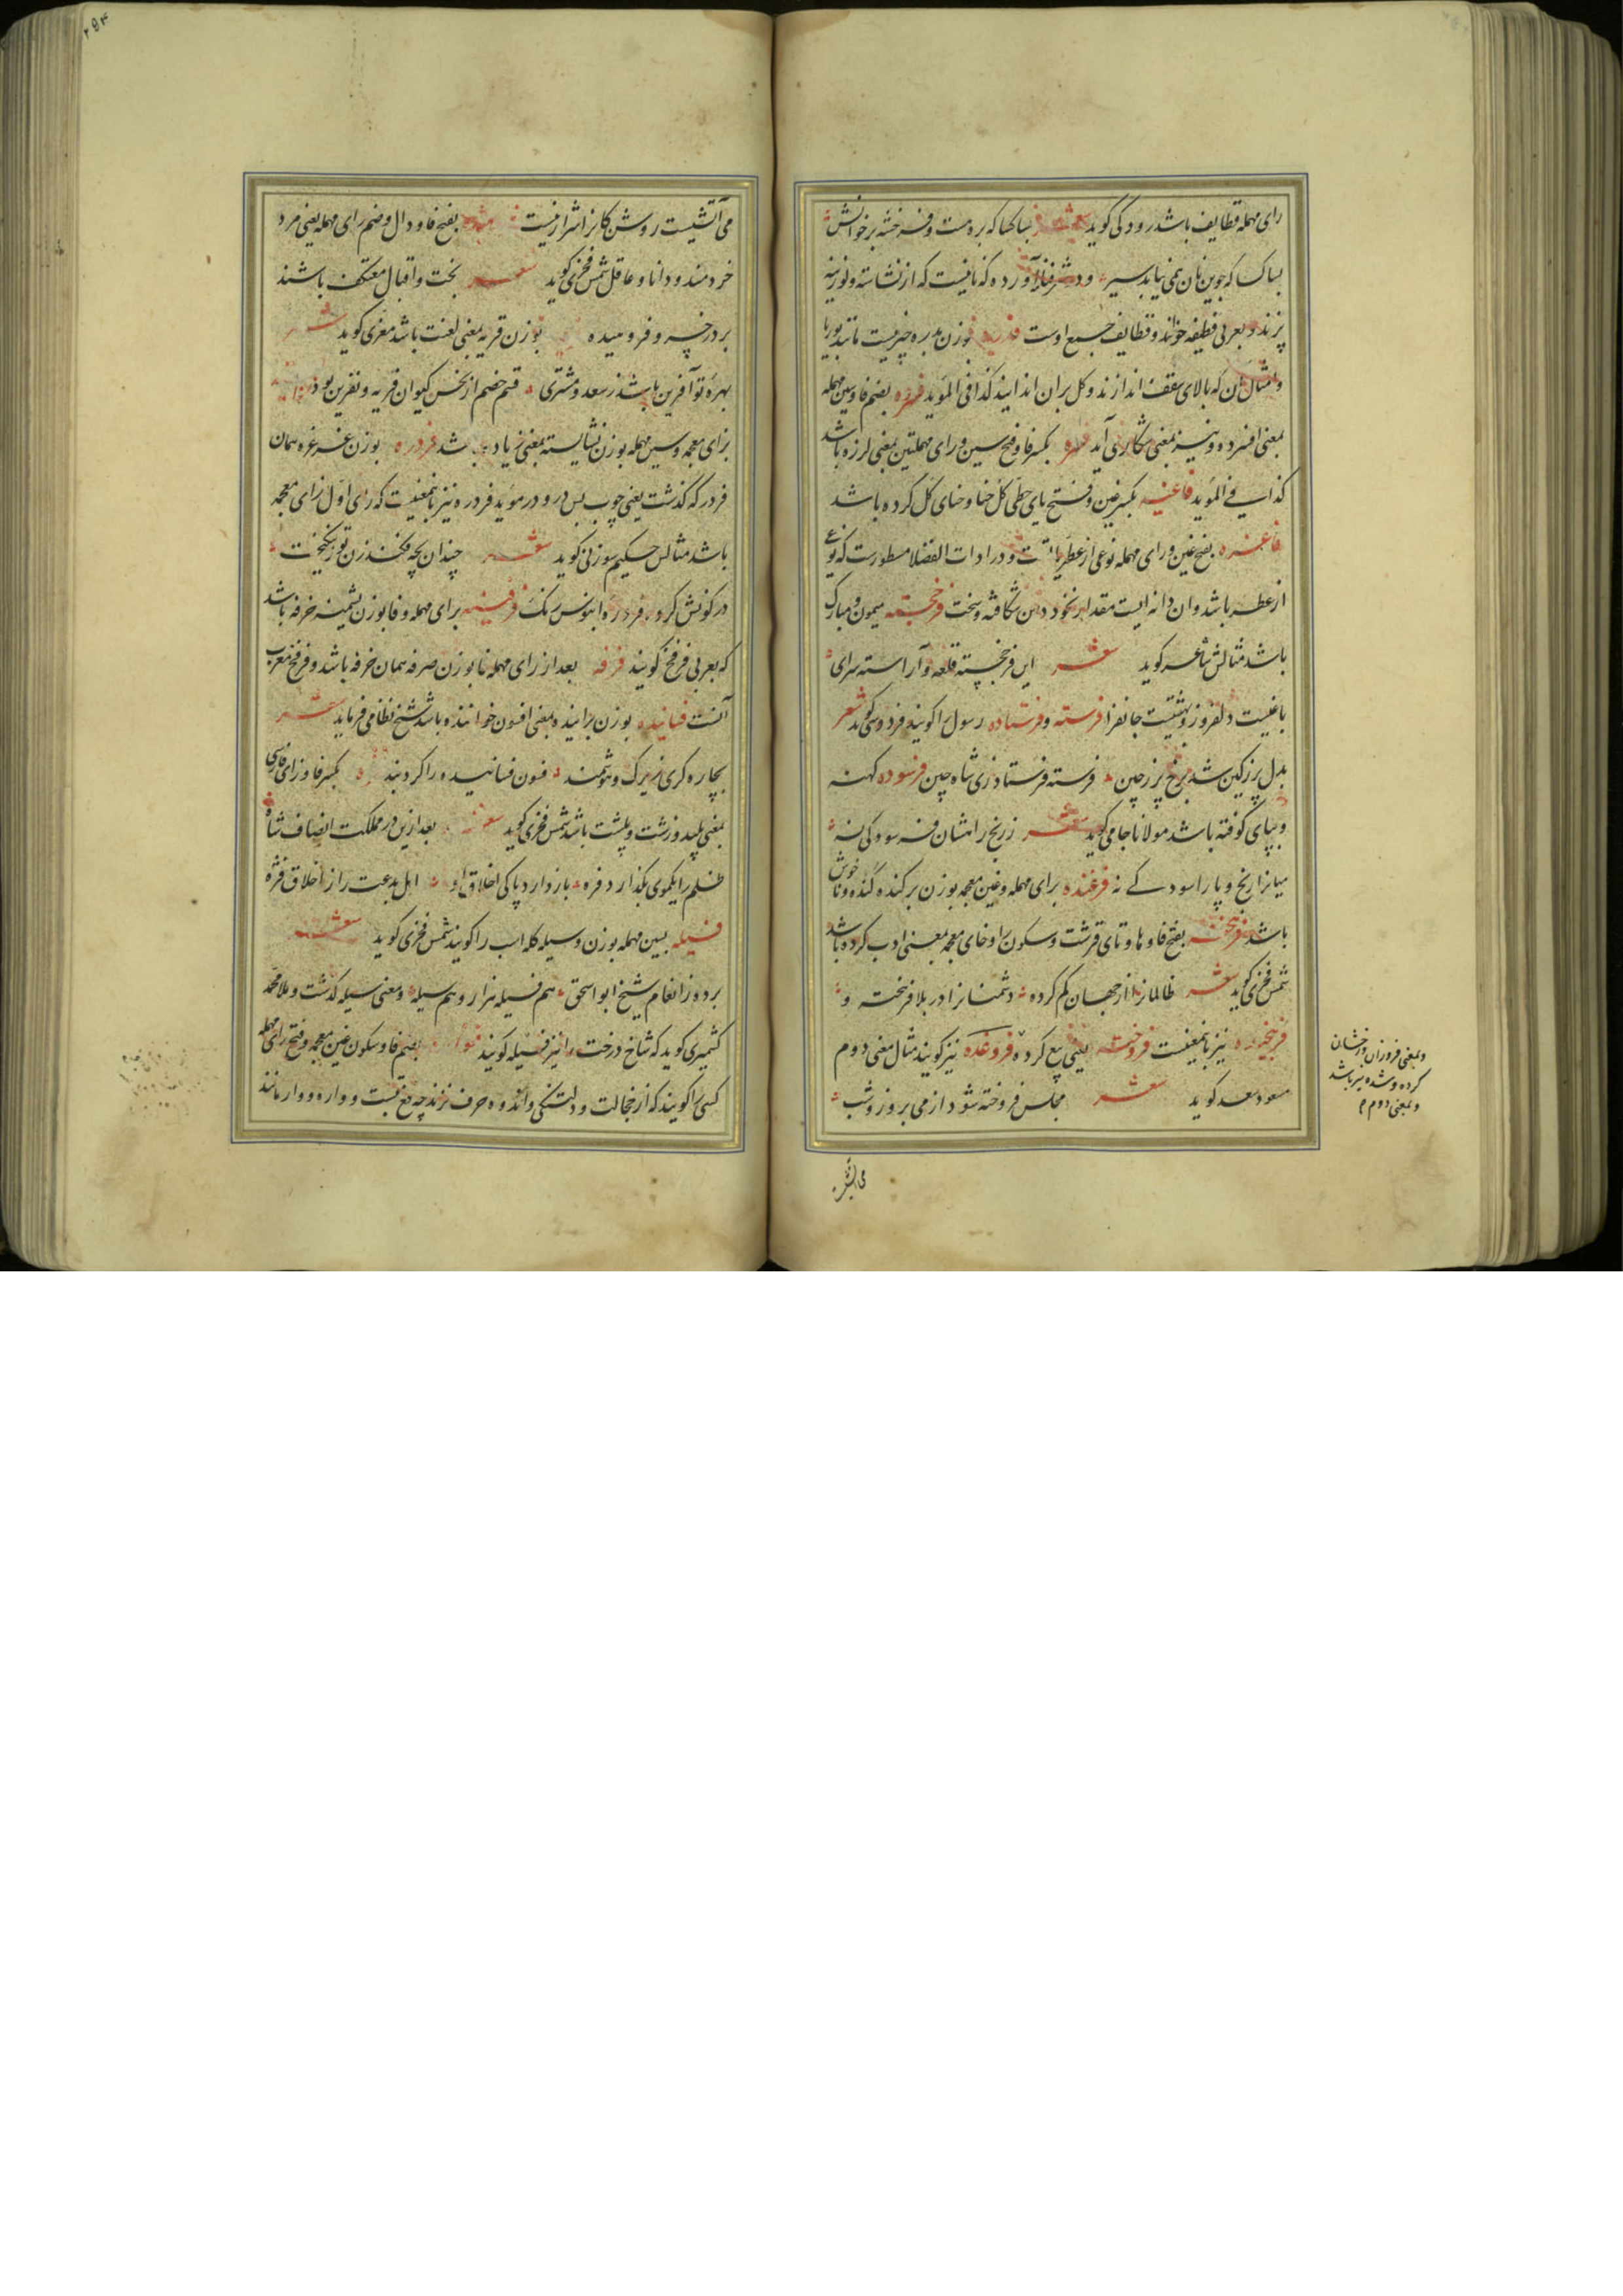 رای مهمله قطایف باشد رودکی کوید شعر بسا کسا که بره است و فرخشه بر خوانش
بسا کسا که جوین نان همی نیابد سیر و در شرفنامه آورده که نانیست که از نشاسته و لوزینه
پزند و بعربی قطیفه خوانند و قطایف جمع اوست فدره بوزن بدره چیزیست مانند بوریا
و امثال آن که بالای سقف اندازند و کل بران اندایند کذا فی المؤید فسره بضم فا و سین مهمله
بمعنی افسرده و نیز بمعنی شکاری آید فسره بکسر فا و فتح سین و رای مهملتین بمعنی لرزه باشد
کذا فی المؤید فاغیه بکسر غین و فتح یای حطی کل حنا و حنای کل کرده باشد
فاغره بفتح غین و رای مهمله نوعی از عطریاتست و در ادات الفضلا مسطورست که نوعی
از عطر باشد و ان دانه ایست مقدار نخود دهن شکافته و سخت فرخجسته میمون و مبارک
باشد مثالش شاعر کوید شعر این فرخجسته قلعه و آراسته سرای
باغیست دلفروز و بهشتیست جانفزا فرسته و فرستاده رسول را کویند فردوسی کوید شعر
بدل پر ز کین شد برخ پر ز چین فرسته فرستاد زی شاه چین فرسوده کهنه
و بپای کوفته باشد مولانا جامی کوید شعر ز رنج راهشان فرسودکی نه
میانرا رنج و پا را سودکی نه فرغنده برای مهمله و غین معجمه بوزن برکنده کنده و ناخوش
باشد فرهخته بفتح فا و ها و تای قرشت و سکون را و خای معجمه بمعنی ادب کرده باشد
شمس فخری کوید شعر ظالمانرا از جهان کم کرده دشمنانرا در بلا فرهخته و
نیز بانمعنیست فروخته یعنی بیع کرده و فروغده نیز کویند مثال معنی دوم
مسعود سعد کوید شعر مجلس فروخته شود از می بروز و شب
و بمعنی فروزان و رخشان
کرده و شده نیز باشد
و بمعنی دوم م
می آتشیست روشن کانرا شرار نیست بفتح فا و دال و ضم رای مهمله یعنی مرد
خردمند و دانا و عاقل شمس فخری کوید شعر بخت و اقبال معتکف باشند
بر در خسرو فرومیده بوزن قریه بمعنی لعنت باشد معزی کوید شعر
بهره تو آفرین باشد ز سعد و مشتری قسم خصم از نحس کیوان فریه و نفرین بود
بزای معجمه و سین مهمله بوزن نشایسته بمعنی زیاده باشد فردره بوزن غرغره همان
فردر که کذشت یعنی چوب پس در و در مؤید فردره نیز بانمعنیست که رای اول زای معجمه
باشد مثالش حکیم سوزنی کوید شعر چندان بچه فکند زن
در کونش کرد فردره ابنوس رنک فرفینه برای مهمله و فا بوزن پشمینه خرفه باشد
که بعربی فرفخ کویند فرفه بعد از رای مهمله فا بوزن صرفه همان خرفه باشد و فرفخ معرب
آنست فسانیده بوزن چرانیده بمعنی افسون خواننده باشد شیخ نظامی فرماید شعر
بچاره کری زیرک و هوشمند فسون فسانیده را کرد بند بکسر فا و زای فارسی
بمعنی پلید و زشت و پلشت باشد شمس فخری کوید شعر بعد ازین در مملکت انصاف شاه
ظلم را یکموی نکذارد فره باز دارد پاکی اخلاق او اهل بدعت را ز اخلاق فژه
فسیله بسین مهمله بوزن وسیله کله اسب را کویند شمس فخری کوید شعر
برده ز انعام شیخ ابواسحق هم فسیله هزار و هم سیله و معنی سیله کذشت و ملا محمد
کشمیری کوید که شاخ درخت را نیز فسیله کویند بضم فا و سکون غین معجمه و فتح رای مهمله
کسی را کویند که از خجالت و دلتنکی و اندوه حرف نزند چه فغ بتست و واره و وار مانند